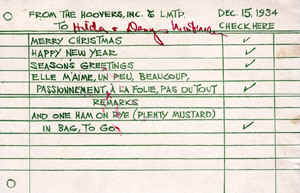 FROM THE HOOVERS, INC. & LMTD. DEC 15, 1934
TO Hilda & CHECK HERE
MERRY CHRISTMAS ✓
HAPPY NEW YEAR ✓
SEASON'S GREETINGS ✓
ELLE M'AIME, UN PEU, BEAUCOUP,
PASSIONNEMENT, À LA FOLIE, PAS DU TOUT ✓
REMARKS
AND ONE HAM ON RYE (PLENTY MUSTARD)
IN BAG, TO GO ✓